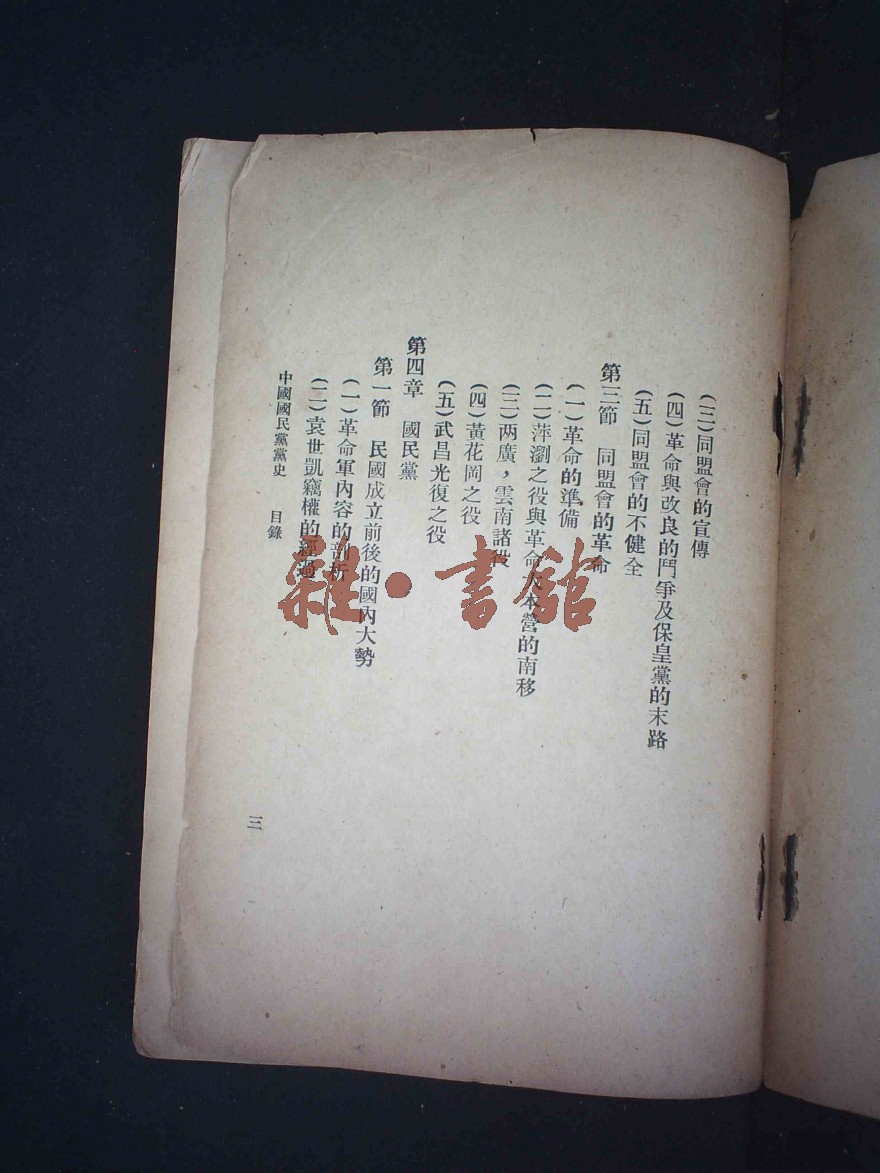 (三)同盟會的宣傳
(四)革命與改良的鬥爭及保皇黨的末路
(五)同盟會的不健全
第三節 同盟會的革命
(一)革命的準備
(二)萍瀏之役與革命大本營的南移
(三)两廣，雲南諸役
(四)黃花岡之役
(五)武昌光復之役
第四章 國民黨
第一節 民國成立前後的國內大勢
(一)革命軍內容的剖析
(二)袁世凱竊權的經過
中國國民黨黨史 目錄
三
雜·書館